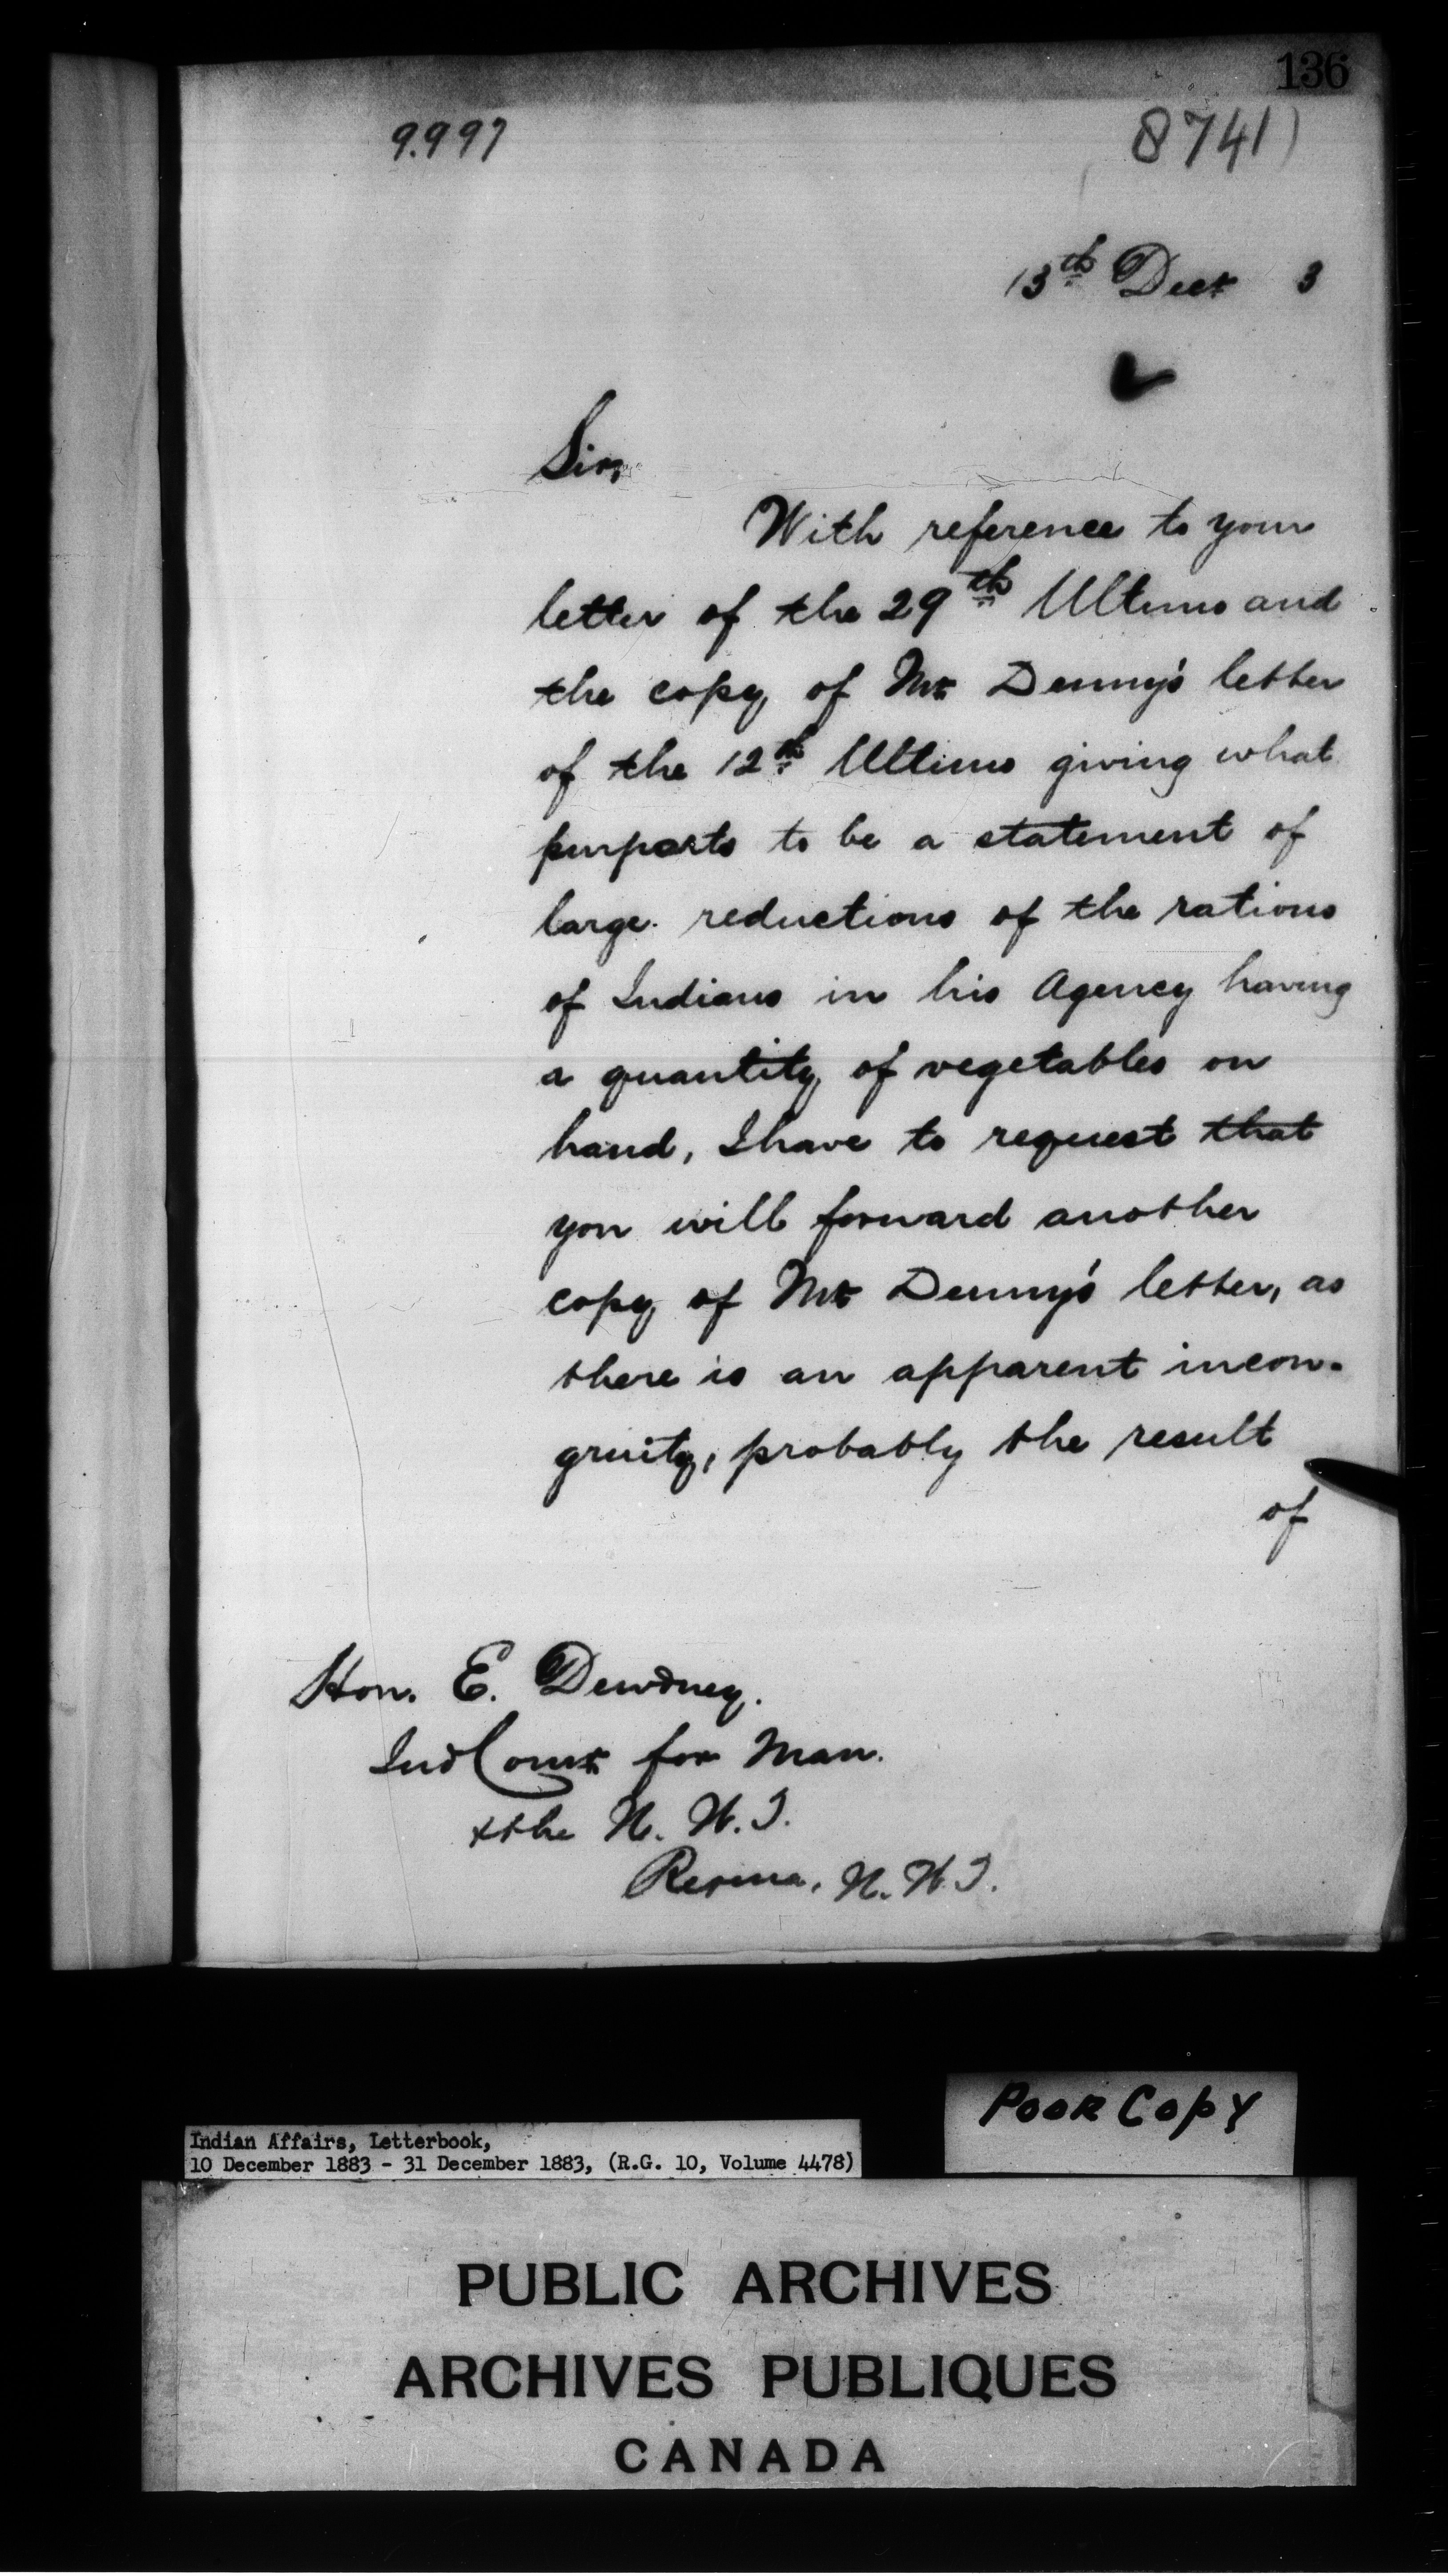 136
9.997
8741)
13th Decr 3
Sir,
With reference to your
letter of the 29th Ultimo and
the copy of Mr Denny's letter
of the 12th Ultimo giving what
purports to be a statement of
large reductions of the rations
of Indians in his Agency having
a quantity of vegetables on
hand, I have to request that
you will forward another
copy of Mr Denny's letter, as
there is an apparent incon-
gruity, probably the result
of
Hon. E. Dewdney.
Ind Comr for Man.
& the N. W. T.
Regina, N. W. T.
Poor Copy
Indian Affairs, Letterbook,
10 December 1883 - 31 December 1883, (R.G. 10, Volume 4478)
PUBLIC ARCHIVES
ARCHIVES PUBLIQUES
CANADA